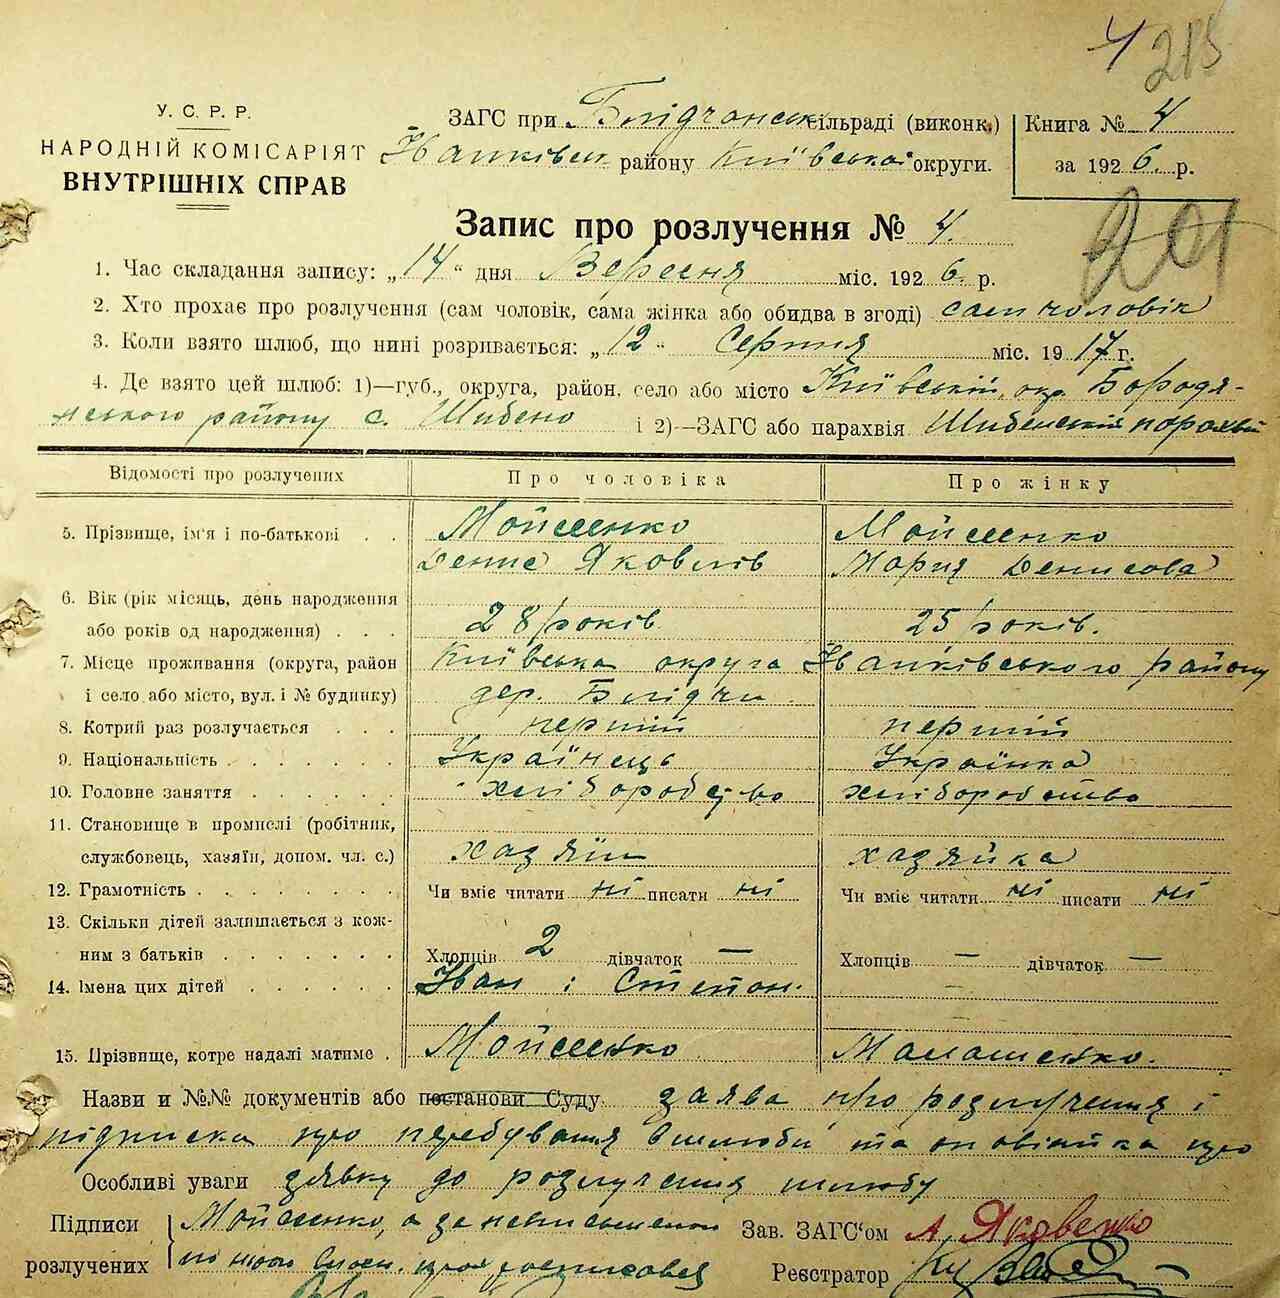 4 215
У. С. Р. Р.
НАРОДНІЙ КОМІСАРІЯТ
ВНУТРІШНІХ СПРАВ
ЗАГС при Блідчанськ сільраді (виконк.)
Іванківськ району Київської округи.
Книга № 4
за 1926 р.
201
Запис про розлучення № 4.
1. Час складання запису: „14“ дня Вересня міс. 1926. р.
2. Хто прохає про розлучення (сам чоловік, сама жінка або обидва в згоді) сам чоловік
3. Коли взято шлюб, що нині розривається: „12“ Серпня міс. 1917 г.
4. Де взято цей шлюб: 1)—губ., округа, район, село або місто Київській окр. Бородя-
нського району с. Шибено і 2)—ЗАГС або парахвія Шибенській парахвій
Відомості про розлучених Про чоловіка Про жінку
5. Прізвище, ім'я і по-батькові . . Мойсеенко Мойсеенко
Денис Яковлів Мария Денисова
6. Вік (рік місяць, день народження
або років од народження) . . . 28 років 25 років.
7. Місце проживання (округа, район Київська округа Іванківського району
і село або місто, вул. і № будинку) дер. Блідчи
8. Котрий раз розлучається . . . перший перший
9. Національність . . . . . . . Українець Українка
10. Головне заняття . . . . . . хліборобство хліборобство
11. Становище в промислі (робітник,
службовець, хазяїн, допом. чл. с.) хазяїн хазяйка
12. Грамотність . . . . . . . . Чи вміє читати ні писати ні Чи вміє читати ні писати ні
13. Скільки дітей залишається з кож-
ним з батьків . . . . . . . Хлопців 2 дівчаток — Хлопців — дівчаток —
14. Імена цих дітей . . . . . . Іван і Степан. —
15. Прізвище, котре надалі матиме . Мойсеенко. Малашенко.
Назви и №№ документів або постанови Суду. заява про розлучення і
підписка про перебування в шлюбі та оповістка про
Особливі уваги заявку до розлучення шлюбу
Підписи
розлучених
Мойсеенко, а за неписьменого
по його росписався
Зав. ЗАГС‘ом А. Яковенко
Реєстратор